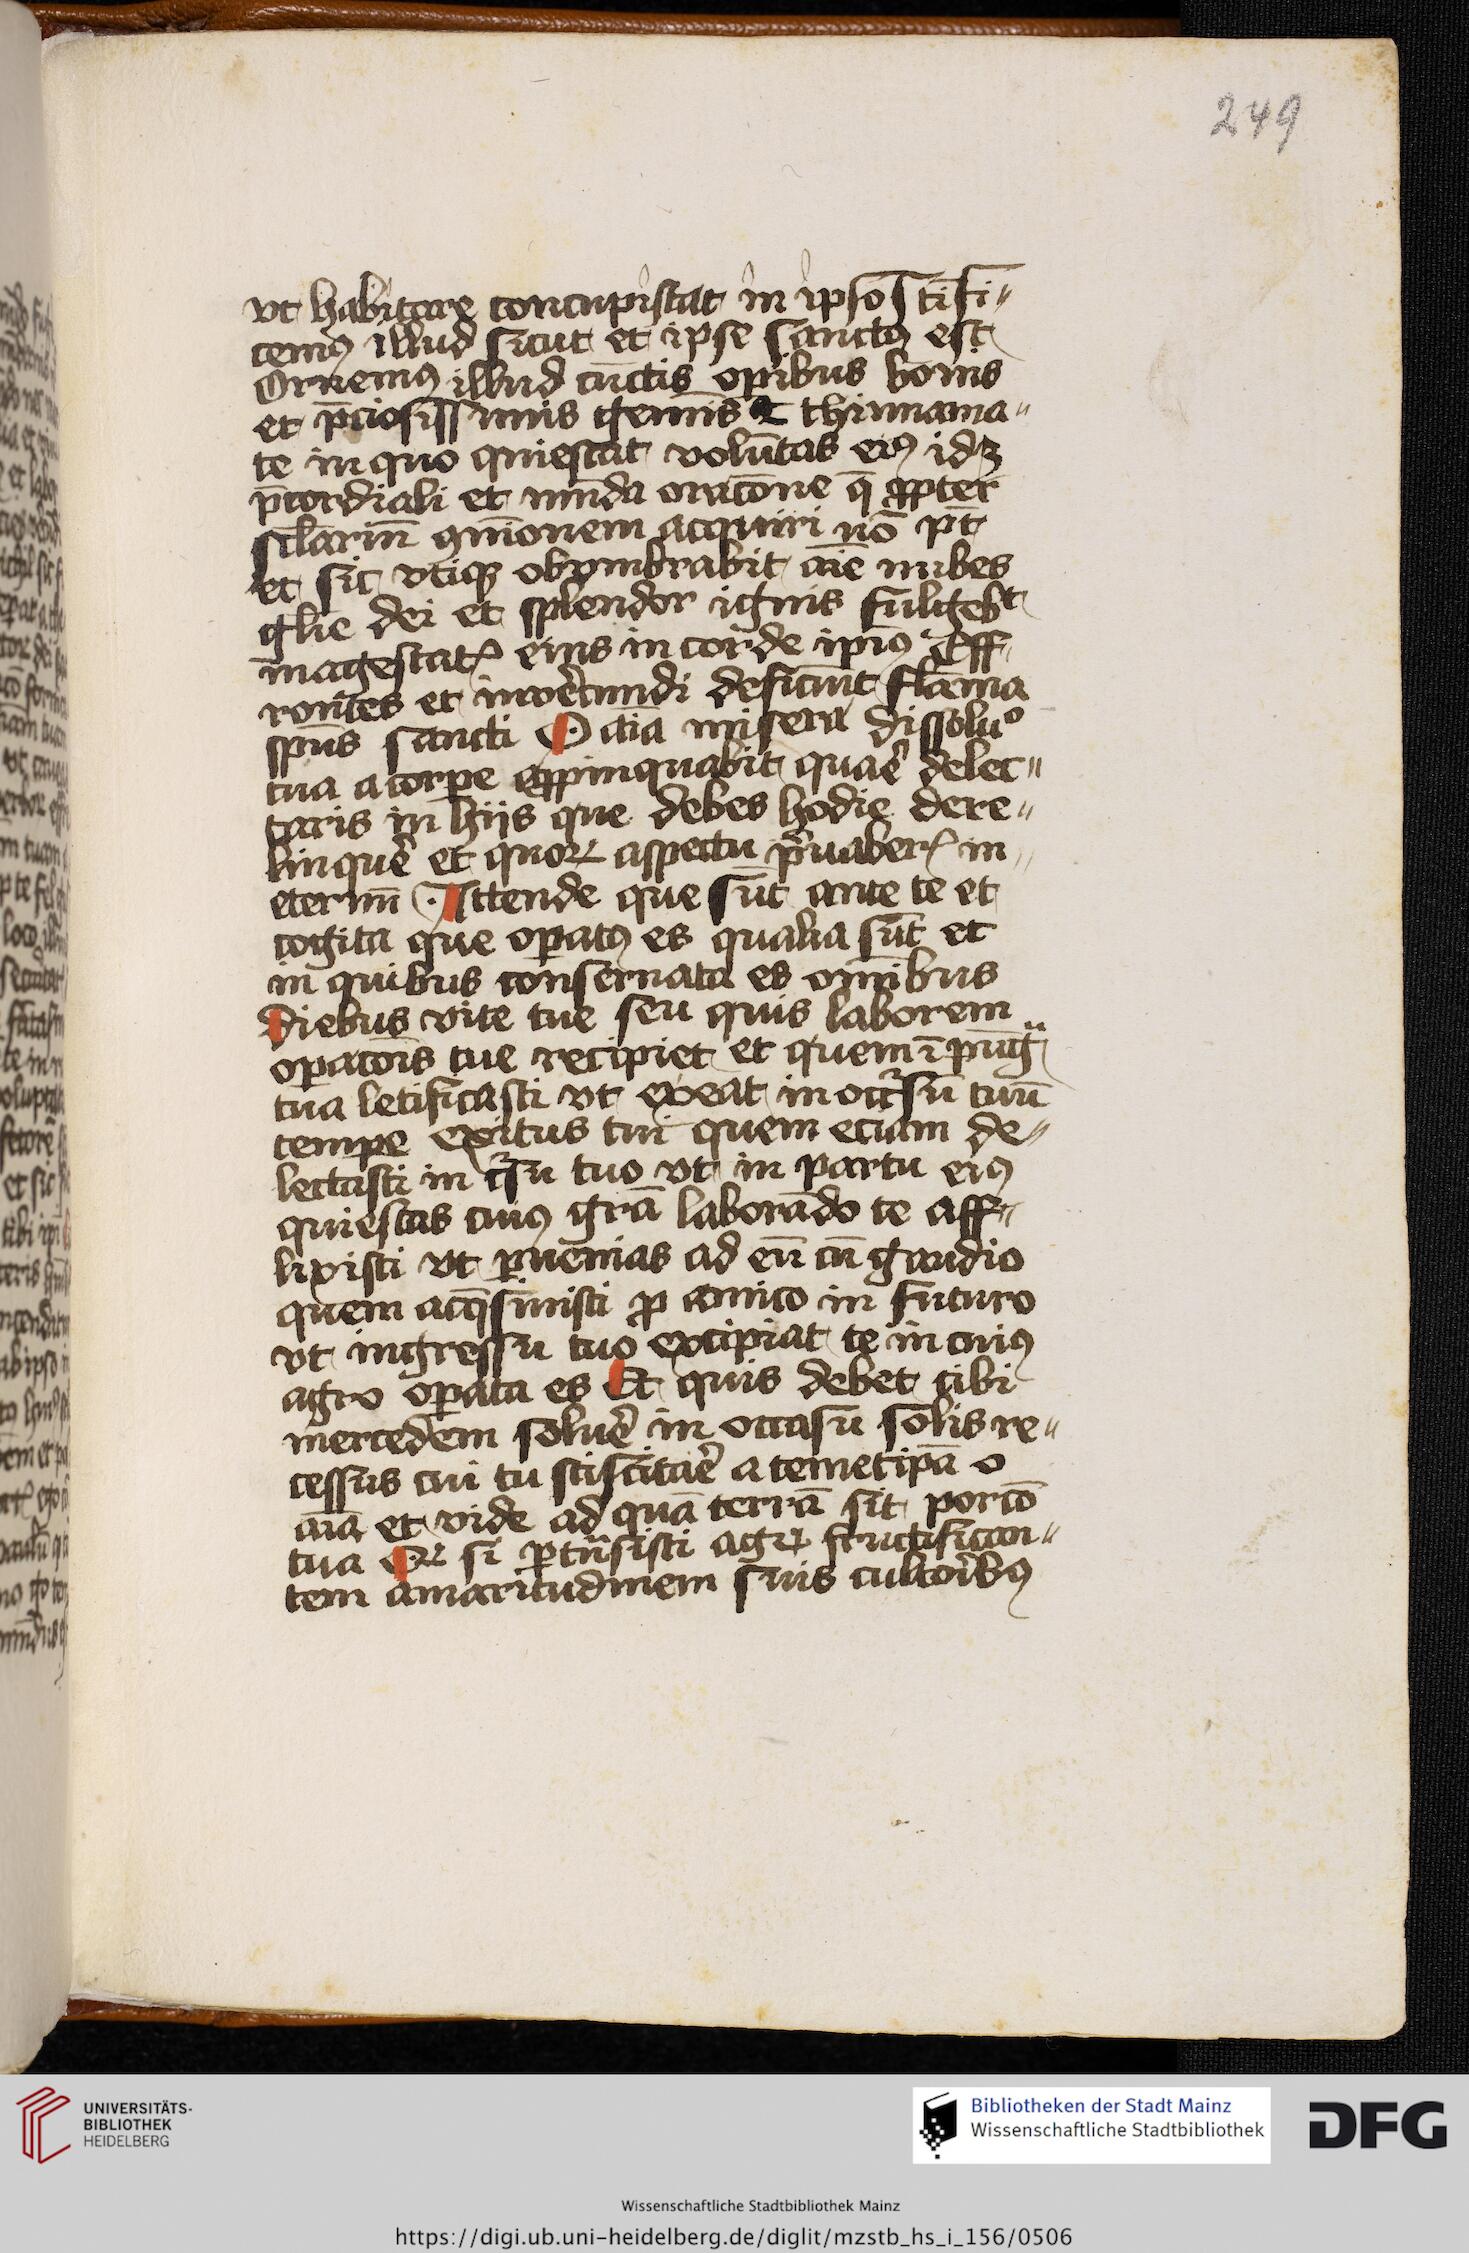 249
vt habitare concupiscat in ipso sc̄tifi〃
cemꝰ illud sicut et ipse sanctꝰ est
Ornemꝰ illud cūctis opībus bonis
et p̄ciosissimis gemīs et thimiama〃
te in quo quiescat volūtas eiꝰ idꝫ
p̄cordiali et mūda oracōne q̄ ꝓpter
sc̄larium ꝯmīonem acquiri nō pt̄
et sic vtiqꝫ obumbrabit aīe nubes
gl̄ie dei et splendor ignis fulgebt
magestatꝭ eius in corde ipīꝰ Eff〃
rontes et inverecundi deficiūt flāma
spūs sancti O aīa misera dissoluᵒ
tua a corꝑe appinquabit quaē delec〃
taris in hijs que debes hodie dere〃
linquē et quoꝝ aspectu pͥuaberꝭ in〃
eternū Attende que sūt ante te et
cogita que oꝑatꝰ es qualia sūt et
in quibus conseruata es omībus
diebus vite tue seu quis laborem
oꝑacōis tue recipiet et quem ī pūgᵃ
tua letificasti vt exeat in occʳsū tuū
temꝑe exitus tui quem eciam de〃
lectasti in cʳsu tuo vt in partu eiꝰ
quiescas cuiꝰ grā laborādo te aff〃
lixisti vt ꝑuenias ad eū cū gaudio
quem acq̄siuisti ꝓ amico in futuro
vt ingressu tuo excipiat te in cuiꝰ
agro oꝑata es Et quis debet tibi
mercedem soluē in occasū solis re〃
cessus cui tu sciscitaē a temetipā o
aīa et vide ad quā terrā sit porcō
tua Qꝛ si ꝑtnſisti agꝝ fructifican〃
tem amaritudinem suis cultoribꝰ
UNIVERSITÄTS-
BIBLIOTHEK
HEIDELBERG
Bibliotheken der Stadt Mainz
Wissenschaftliche Stadtbibliothek
DFG
Wissenschaftliche Stadtbibliothek Mainz
https://digi.ub.uni-heidelberg.de/diglit/mzstb_hs_i_156/0506